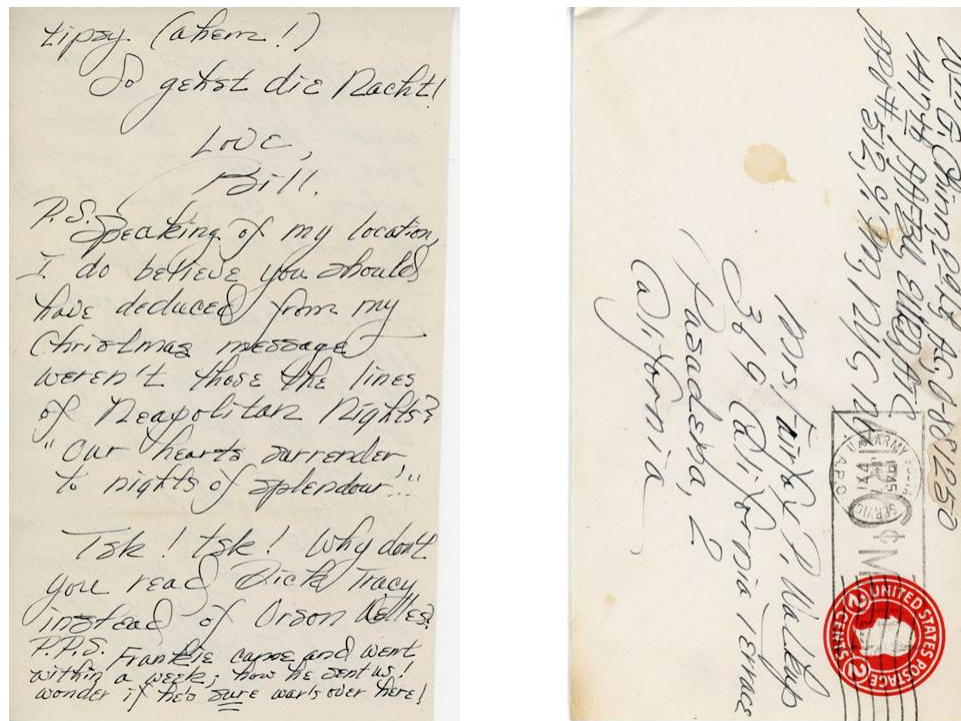 tipsy. (ahem!)
So gehst die Nacht!
Love,
Bill.
P.S. Speaking of my location,
I do believe you should
have deduced from my
Christmas message
weren't those the lines
of Neapolitan Nights?
"Our hearts surrender,
to nights of splendour!.."
Tsk! tsk! Why don't
you read Dick Tracy
instead of Orson Welles?
P.P.S. Frankie came and went
within a week; how he sent us!
wonder if he's sure war's over here!
Mrs. Fairfax P. Walkup
369 California Terrace
Pasadena, 2
California
1414th AAFBU
APO # 512, % PM, NYC, NY
U.S. ARMY POSTAL
SERVICE
A.P.O.
1945
UNITED STATES POSTAGE
2 CENTS 2